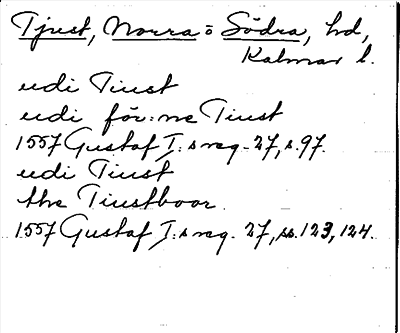 Tjust, Norra o Södra, hd,
Kalmar l.
udi Tiust
udi för:ne Tiust
1557 Gustaf I:s reg. 27, s. 97.
udi Tiust
the Tiustboar.
1557 Gustaf I:s reg. 27, ss. 123, 124.